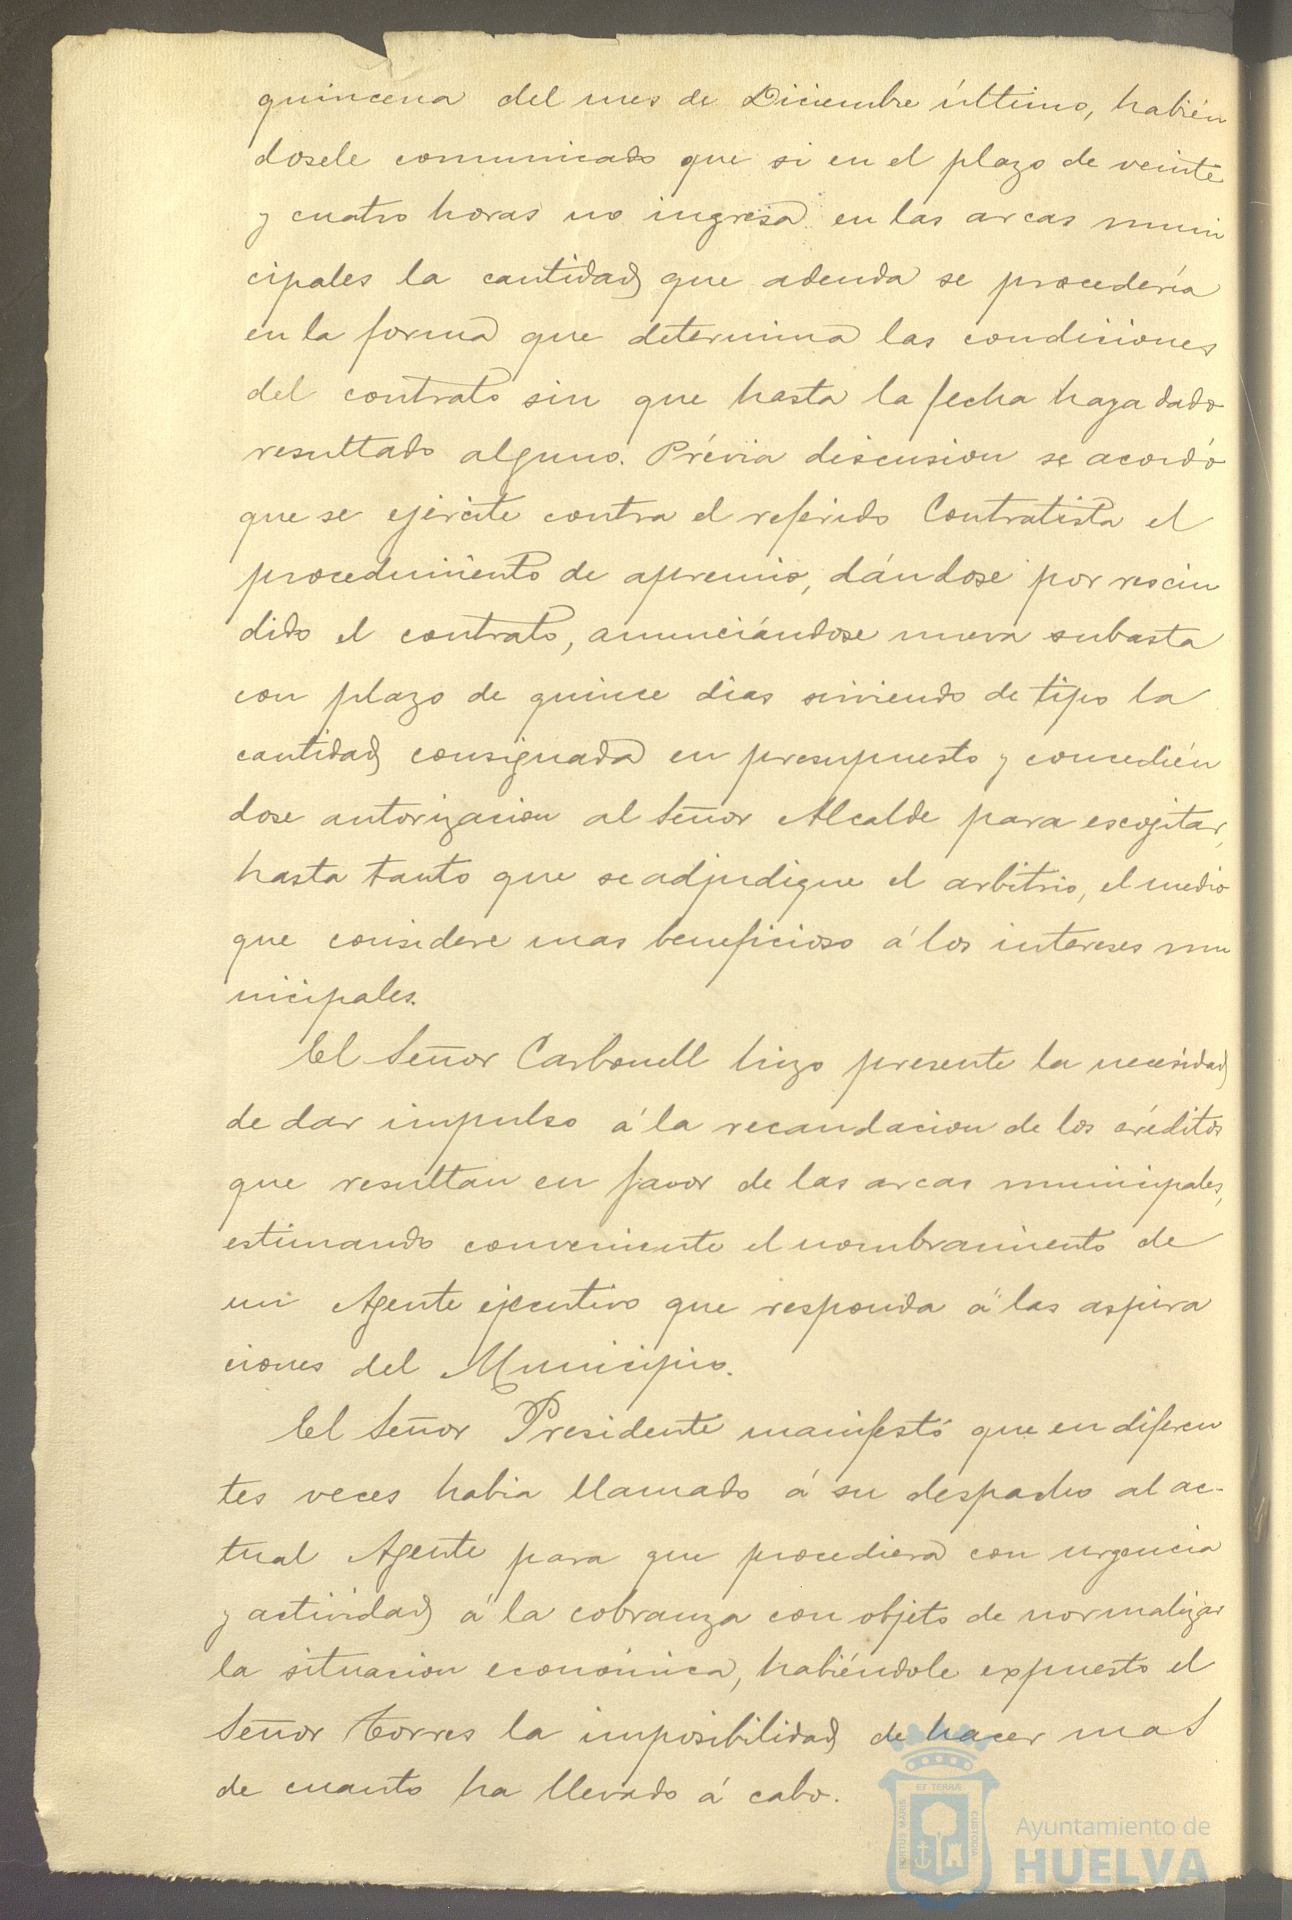 quincena del mes de Diciembre último, habién
dosele comunicado que si en el plazo de veinte
y cuatro horas no ingresa en las arcas muni
cipales la cantidad que adeuda se procedería
en la forma que determina las condiciones
del contrato sin que hasta la fecha haya dado
resultado alguno. Prévia discusion se acordó
que se ejercite contra el referido Contratista el
procedimiento de apremio, dándose por rescin
dido el contrato, anunciándose nueva subasta
con plazo de quince dias sirviendo de tipo la
cantidad consignada en presupuesto y concedién
dose autorizacion al Señor Alcalde para escojitar,
hasta tanto que se adjudique el arbitrio, el medio
que considere mas beneficioso á los intereses mu
nicipales.
El Señor Carbonell hizo presente la necesidad
de dar impulso á la recaudacion de los créditos
que resultan en favor de las arcas municipales,
estimando conveniente el nombramiento de
un Agente ejecutivo que responda á las aspira
ciones del Municipio.
El Señor Presidente manifestó que en diferen
tes veces habia llamado á su despacho al ac-
tual Agente para que procediera con urgencia
y actividad á la cobranza con objeto de normalizar
la situacion económica, habiéndole expuesto el
Señor Torres la imposibilidad de hacer mas
de cuanto ha llevado á cabo.
ET TERRÆ
PORTUS MARIS
CUSTODIA
Ayuntamiento de
HUELVA